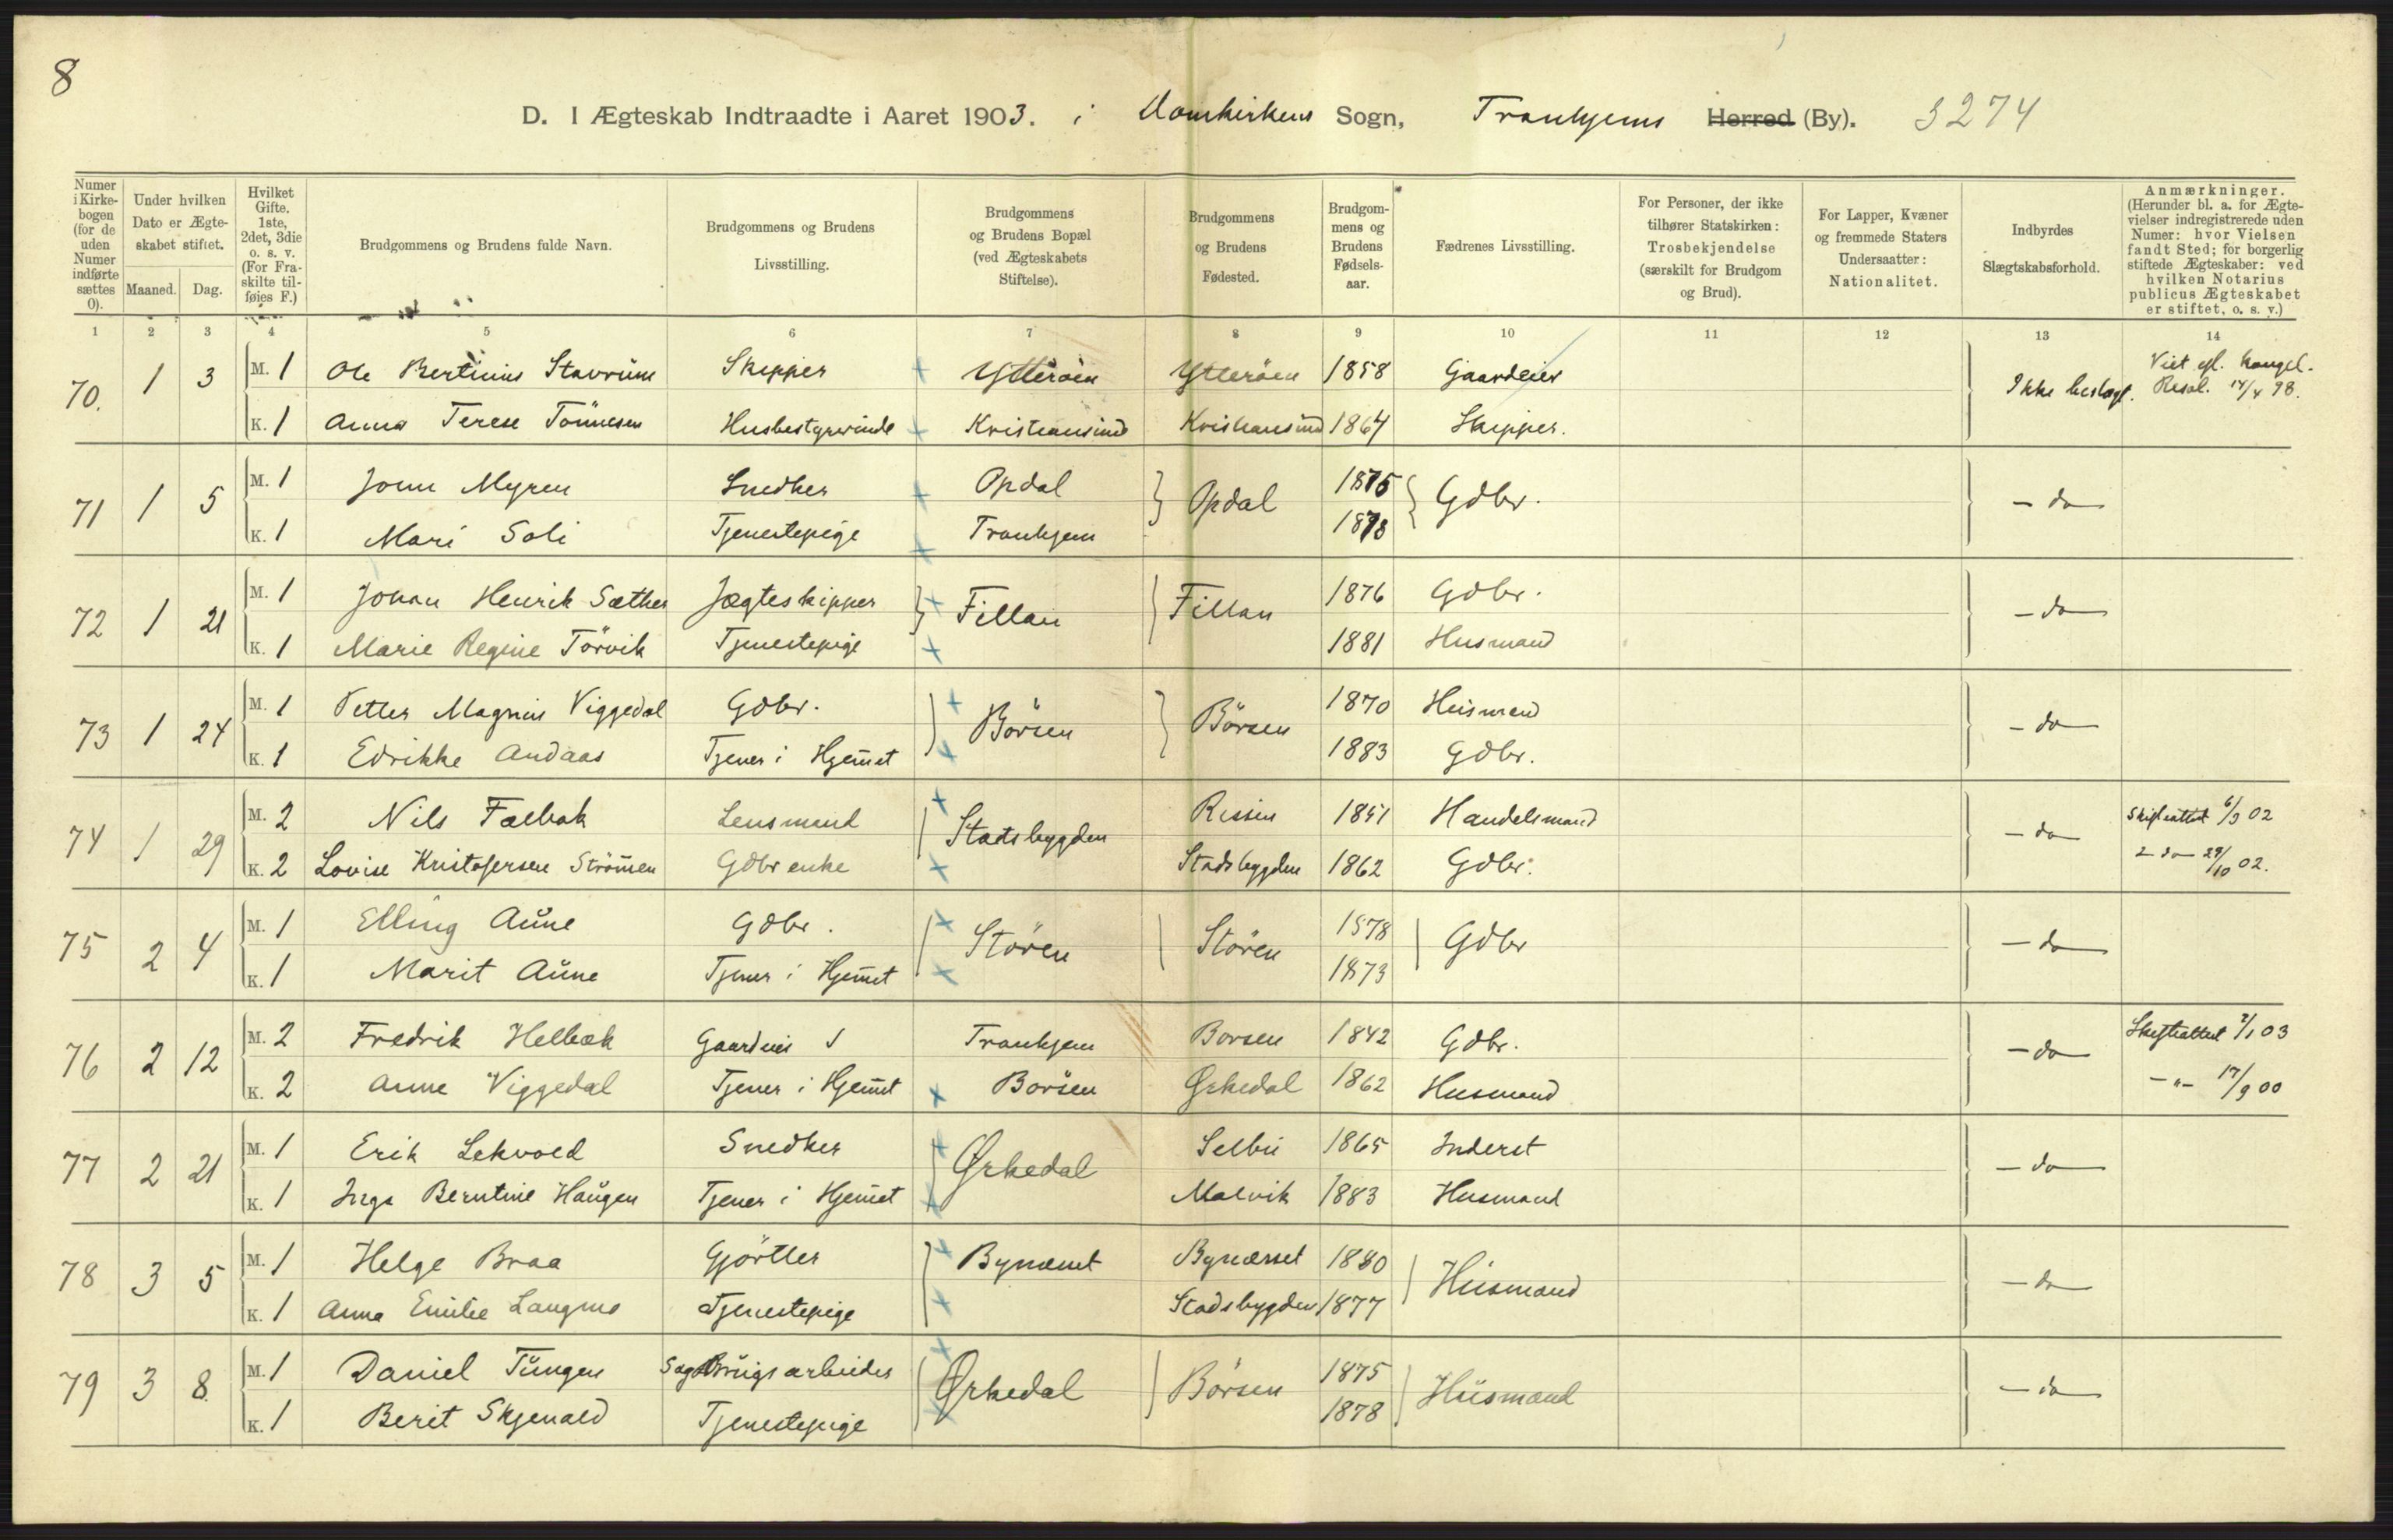 8
D. I Ægteskab Indtraadte i Aaret 1903. i Domkirkens Sogn, Trondhjems Herred (By). 3274
Numer i Kirkebogen (for de uden Numer indførte sættes 0).
Under hvilken Dato er Ægteskabet stiftet.
Maaned. Dag.
Hvilket Gifte. 1ste, 2det, 3die o. s. v. (For Fraskilte tilføies F.)
Brudgommens og Brudens fulde Navn.
Brudgommens og Brudens Livsstilling.
Brudgommens og Brudens Bopæl (ved Ægteskabets Stiftelse).
Brudgommens og Brudens Fødested.
Brudgommens og Brudens Fødselsaar.
Fædrenes Livsstilling.
For Personer, der ikke tilhører Statskirken: Trosbekjendelse (særskilt for Brudgom og Brud).
For Lapper, Kvæner og fremmede Staters Undersaatter: Nationalitet.
Indbyrdes Slægtskabsforhold.
Anmærkninger. (Herunder bl. a. for Ægtevielser indregistrerede uden Numer: hvor Vielsen fandt Sted; for borgerlig stiftede Ægteskaber: ved hvilken Notarius publicus Ægteskabet er stiftet, o. s. v.)
1 2 3 4 5 6 7 8 9 10 11 12 13 14
70. 1 3 M. 1 Ole Bertinius Stavrum Skipper Ytterøen Ytterøen 1858 Gaardeier Ikke beslægt. Viet efl. kongel. Resol. 14/4 98.
K. 1 Anna Terese Tönnesen Husbestyrerinde Kristiansund Kristiansund 1864 Skipper.
71 1 5 M. 1 John Myren Snedker Opdal Opdal 1875 Gdbr. - do -
K. 1 Mari Soli Tjenestepige Trondhjem 1878
72 1 21 M. 1 Johan Henrik Sæther Jægteskipper Fillan Fillan 1876 Gdbr. - do -
K. 1 Marie Regine Törvik Tjenestepige 1881 Husmand
73 1 24 M. 1 Petter Magnus Viggedal Gdbr. Börsen Börsen 1870 Husmand - do -
K. 1 Edrikke Andaas Tjener i Hjem̄et 1883 Gdbr.
74 1 29 M. 2 Nils Falbak Lensmand Stadsbygden Rissen 1851 Handelsmand - do - Skifteattest 6/3 02
K. 2 Lovise Kristofersen Ström̄en Gdbr enke Stadsbygden 1862 Gdbr. - do - 29/10 02.
75 2 4 M. 1 Elling Aune Gdbr. Stören Stören 1878 Gdbr - do -
K. 1 Marit Aune Tjener i Hjem̄et 1873
76 2 12 M. 2 Fredrik Helbak Gaardeier Trondhjem Borsen 1842 Gdbr. - do - Skifteattest 2/1 03
K. 2 Anne Viggedal Tjener i Hjem̄et Borsen Ørkedal 1862 Husmand - " - 17/9 00
77 2 21 M. 1 Erik Lekvold Snedker Ørkedal Selbu 1865 Inderst - do -
K. 1 Inga Berntine Haugen Tjener i Hjem̄et Malvik 1883 Husmand
78 3 5 M. 1 Helge Braa Gjörtler Bynæsset Bynæsset 1880 Husmand - do -
K. 1 Anna Emilie Langmo Tjenestepige Stadsbygden 1877
79 3 8 M. 1 Daniel Tungen Sagbrugsarbeider Ørkedal Börsen 1875 Husmand - do -
K. 1 Berit Skjenald Tjenestepige 1878